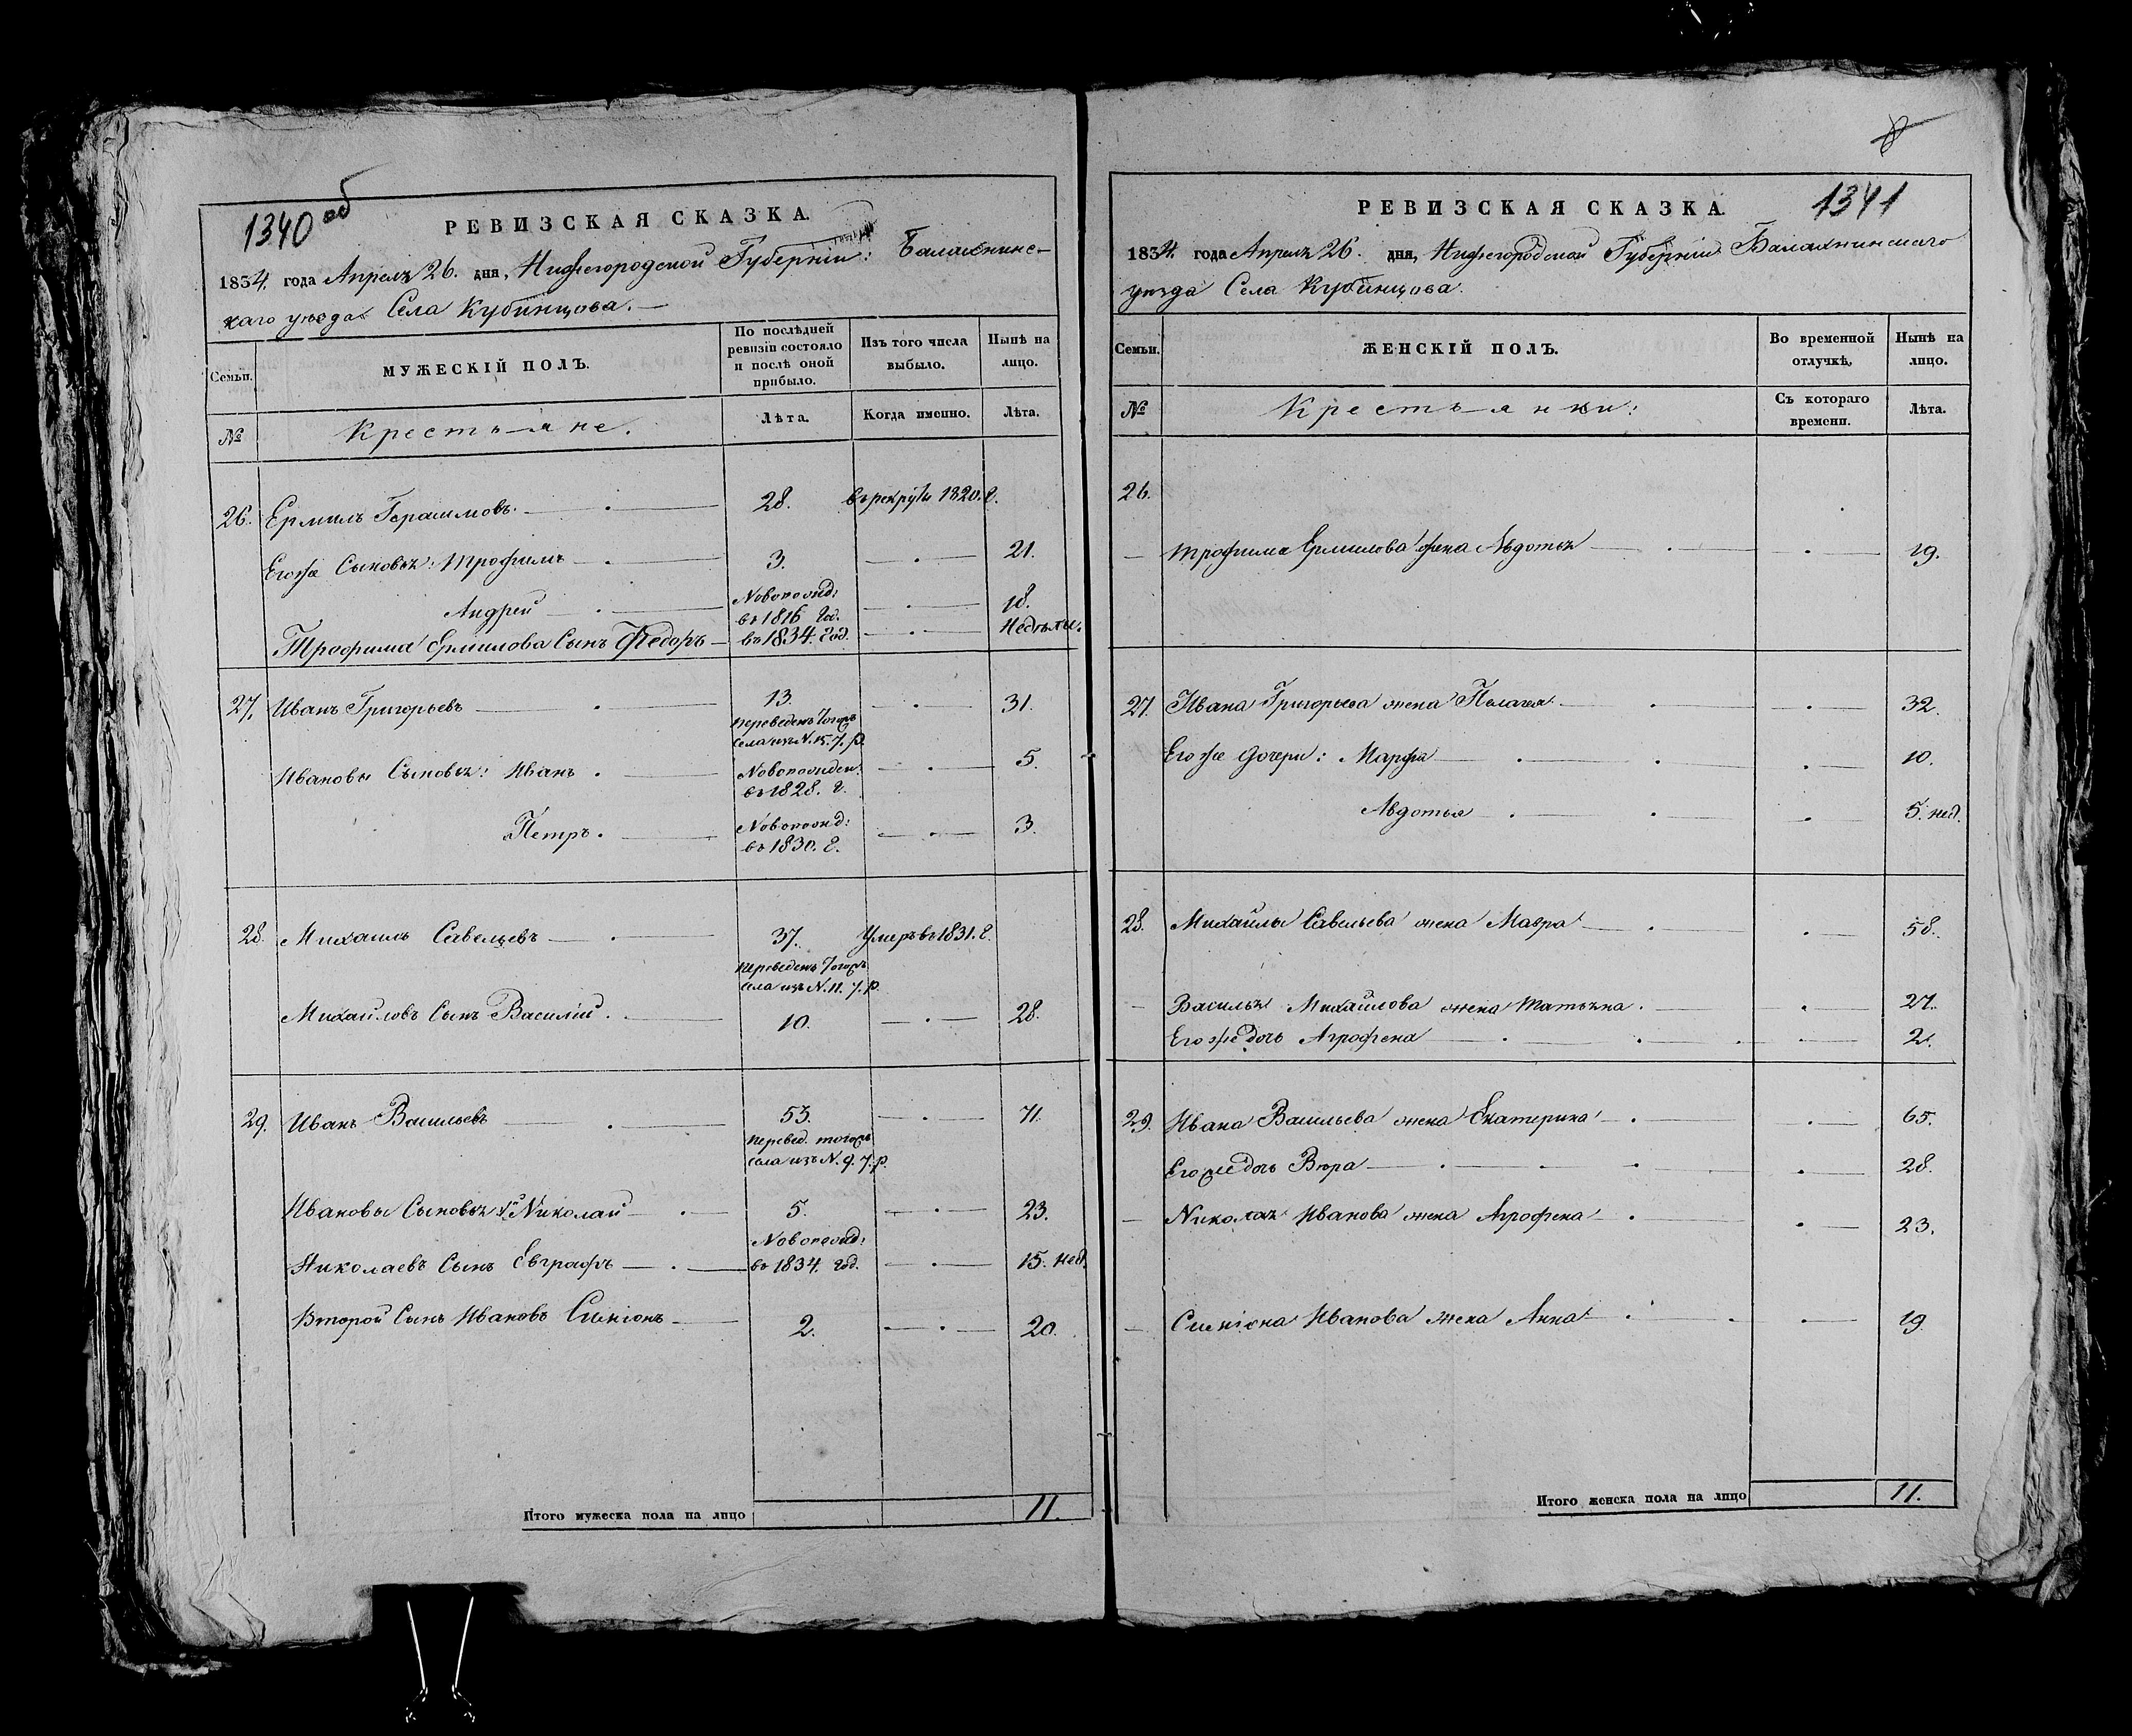 1340 об
РЕВИЗСКАЯ СКАЗКА.
1834. года Апреля 26. дня, Нижегородской Губерніи: Балахнинс-
каго уезда Села Кубинцова.
Семьи.
МУЖЕСКІЙ ПОЛЪ.
По послѣдней ревизіи состояло и послѣ оной прибыло.
Изъ того числа выбыло.
Нынѣ на лицо.
№
Крестьяне.
Лѣта.
Когда именно.
Лѣта.
26. Ермилъ Герасимовъ. 28. въ рекруты 1820. г.
Егоже Сыновья: Трофимъ 3. 21.
Андрей Новорожд: въ 1816 год. 18.
Трофима Ермилова Сынъ Федоръ въ 1834. год. Недѣлы.
27. Иванъ Григорьевъ 13. 31.
переведенъ тогожъ
села изъ N. 15. 7. р.
Ивановы Сыновья: Иванъ. Новорожден: въ 1828. г. 5.
Петръ. Новорожд: въ 1830. г. 3.
28. Михаилъ Савельевъ 37. Умеръ въ 1831. г.
переведенъ тогожъ
села изъ N. 11. 7. р.
Михайловъ Сынъ Василій. 10. 28.
29. Иванъ Васильевъ 53. 71.
перевед. тогожъ
села изъ N. 9. 7. р.
Ивановы Сыновья 1й Николай 5. 23.
Николаевъ Сынъ Евграфъ Новорожд: въ 1834. год. 15. нед.
Второй Сынъ Ивановъ Симіонъ 2. 20.
Итого мужеска пола на лицо 11.
1341
РЕВИЗСКАЯ СКАЗКА.
1834. года Апреля 26. дня, Нижегородской Губерніи Балахнинскаго
уезда Села Кубинцова.
Семьи.
ЖЕНСКІЙ ПОЛЪ.
Во временной отлучкѣ,
Нынѣ на лицо.
№
Крестьянки:
Съ котораго времени.
Лѣта.
26.
Трофима Ермилова жена Авдотья 19.
27. Ивана Григорьева жена Пелагея 32.
Егоже дочери: Марфа 10.
Авдотья 5. нед.
28. Михайлы Савельева жена Мавра 58.
Василья Михайлова жена Татьяна. 27.
Егоже дочь Агрофена 2.
29. Ивана Васильева жена Екатерина 65.
Егоже дочь Вѣра 28.
Николая Иванова жена Агрофена 23.
Симіона Иванова жена Анна 19
Итого женска пола на лицо 11.